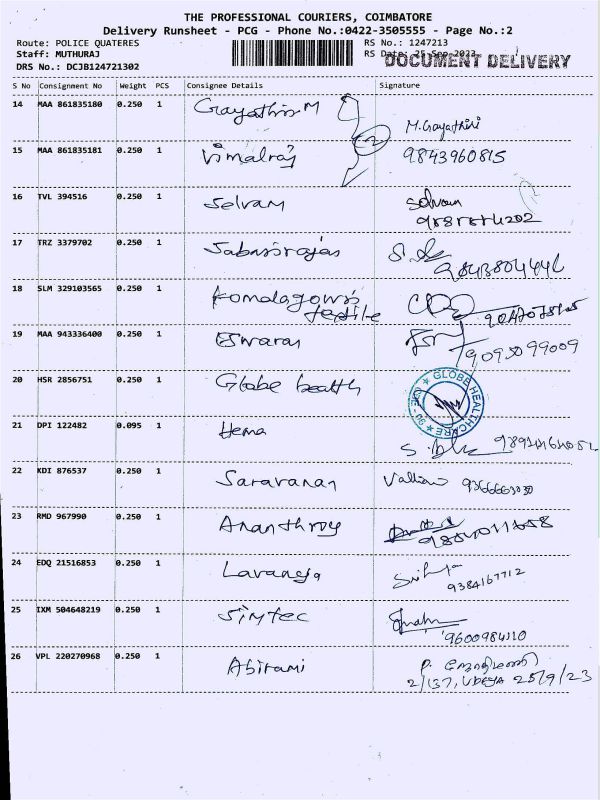 THE PROFESSIONAL COURIERS, COIMBATORE
Delivery Runsheet - PCG - Phone No.:0422-3505555 - Page No.:2
Route: POLICE QUATERES RS No.: 1247213
Staff: MUTHURAJ RS Date: 25-Sep-2023
DOCUMENT DELIVERY
DRS No.: DCJB124721302
S No Consignment No Weight PCS Consignee Details Signature
14 MAA 861835180 0.250 1 Gayathiri M
M.Gayathiri
15 MAA 861835181 0.250 1 Vimalraj 9843960815
16 TVL 394516 0.250 1 Selvam Selvam
17 TRZ 3379702 0.250 1
18 SLM 329103565 0.250 1 Komalagowri's
textile
19 MAA 943336400 0.250 1 Eswaran
9095099009
20 HSR 2856751 0.250 1 Globe health
GLOBE HEALTHCARE
21 DPI 122482 0.095 1 Hema
22 KDI 876537 0.250 1 Saravanan
23 RMD 967990 0.250 1 Ananthroy
24 EDQ 21516853 0.250 1 Lavanya
9384167712
25 IXM 504648219 0.250 1 Simtec
9600984110
26 VPL 220270968 0.250 1 Abirami P.
2/137, 25/9/23